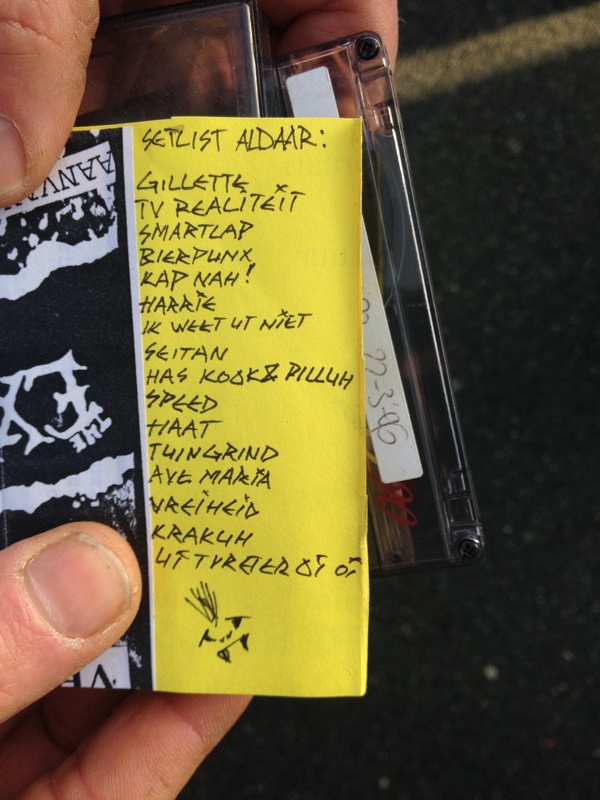 SETLIST ALDAAR:
GILLETTE
TV REALITEIT
SMARTLAP
BIERPUNX
KAP NAH!
HARRIE
IK WEET UT NIET
SEITAN
HAS KOOK & PILLUH
SPEED
HAAT
TUINGRIND
AVE MARIA
VREIHEID
KRAKUH
UITVREIER OI OI
AANVA
THE EX
VE
22-3-96